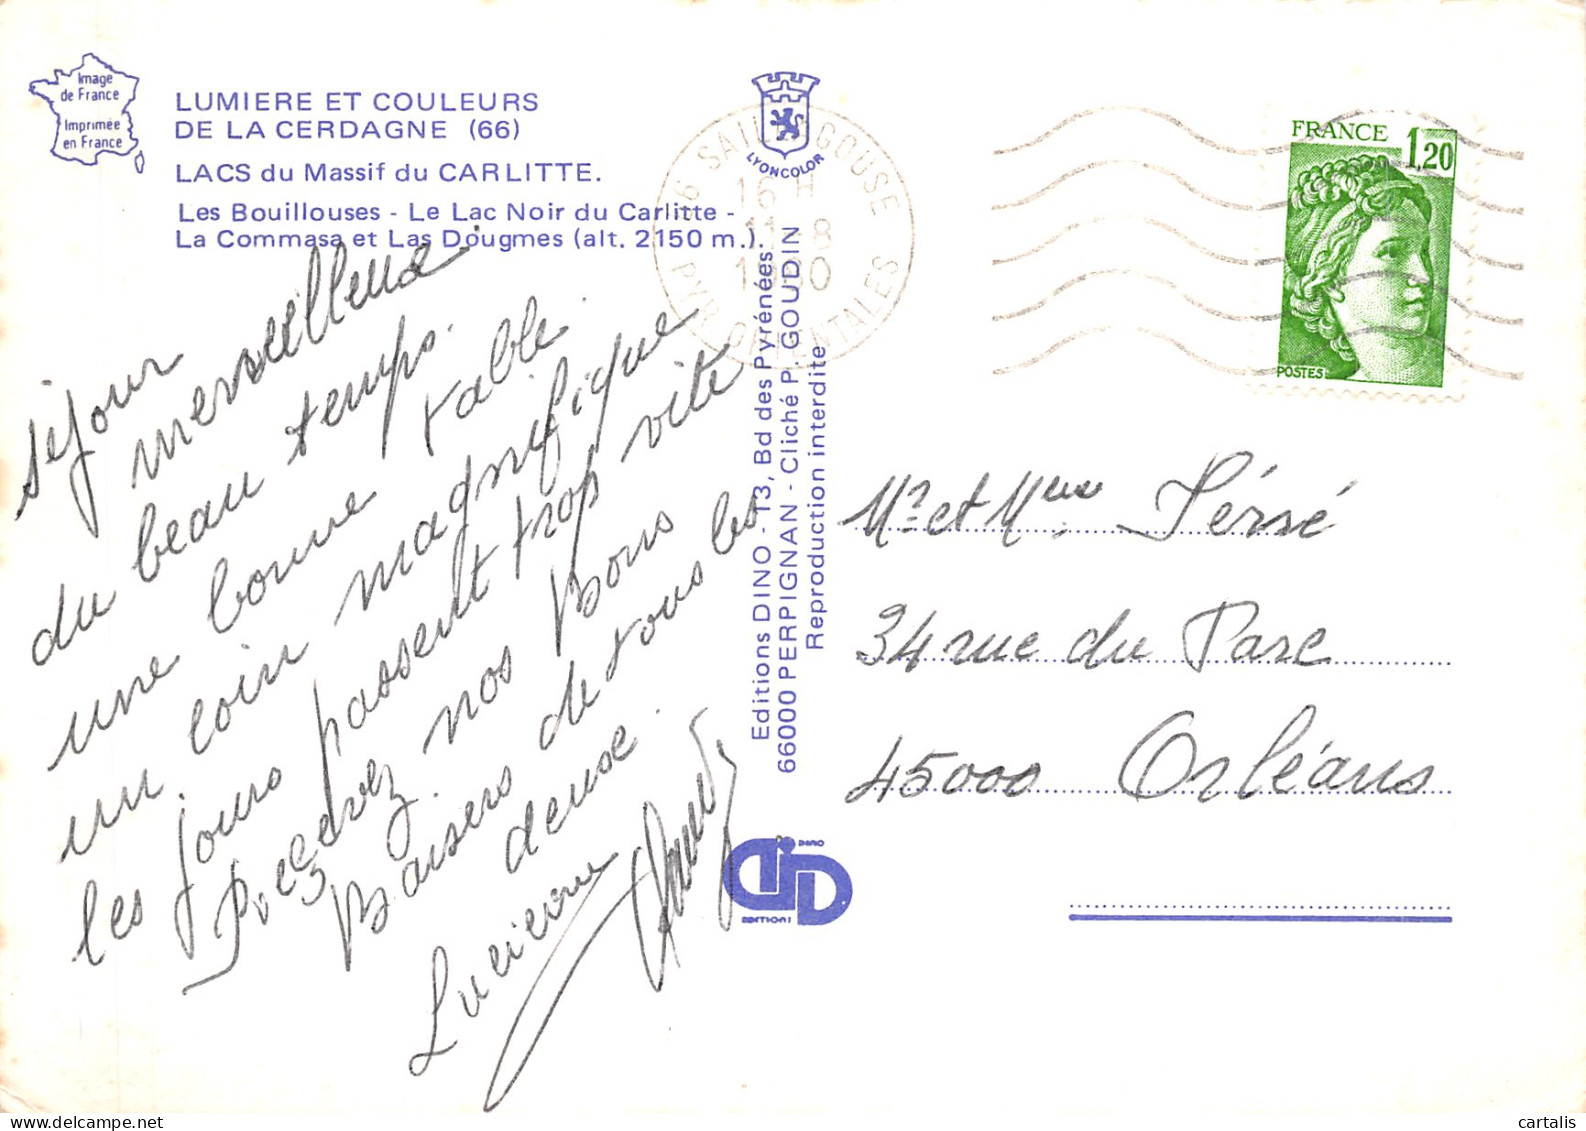 Image
de France
Imprimée
en France
LUMIERE ET COULEURS
DE LA CERDAGNE (66)
LACS du Massif du CARLITTE.
Les Bouillouses - Le Lac Noir du Carlitte -
La Commasa et Las Dougmes (alt. 2150 m.).
séjour
merveilleux
du beau temps.
une bonne table
un coin magnifique
les jours passent trop vite
Recevez nos Bons
Baisers de tous les
deux.
Lucienne
LYONCOLOR
66 SAILLAGOUSE
16 H
11-8
1980
PYR. ORIENTALES
Editions DINO - 13, Bd des Pyrénées
66000 PERPIGNAN - Cliché P. GOUDIN
Reproduction interdite
DINO
EDITIONS
FRANCE 1,20
POSTES
Mr et Mme Persé
34 rue du Parc
45000 Orléans
cartalis